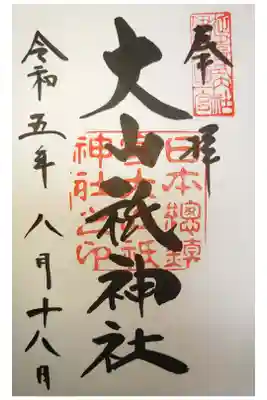 奉拝
大山祇神社
日本總鎮
守大山祇
神社之印
令和五年八月十八日